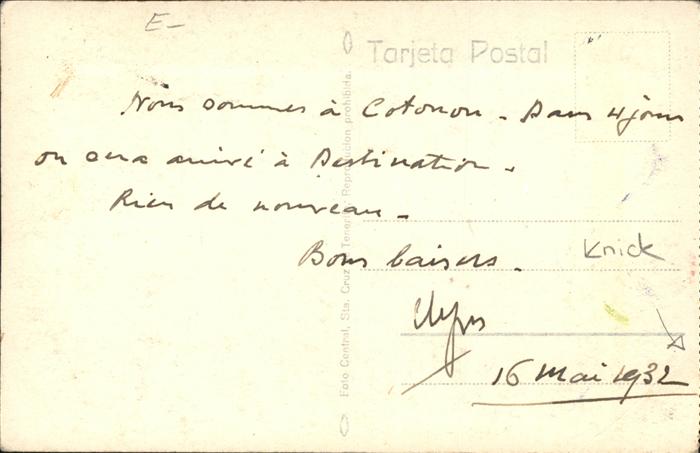 E-
Tarjeta Postal
Nous sommes à Cotonou - Dans 4 jours
on sera arrivé à Destination -
Rien de nouveau -
Bons baisers -
Knick
16 Mai 1932
Foto Central, Sta. Cruz Tenerife Reproducción prohibida.